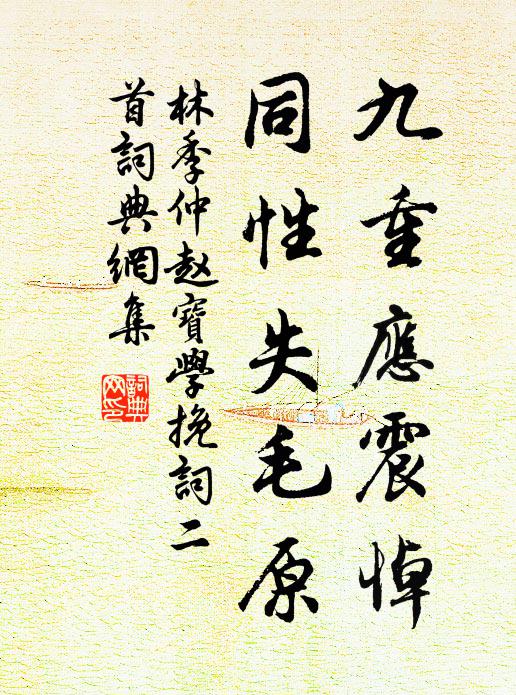 九重應震悼
同性失毛原
林季仲赵寶學挽詞二
首詞典網集
詞典
网印